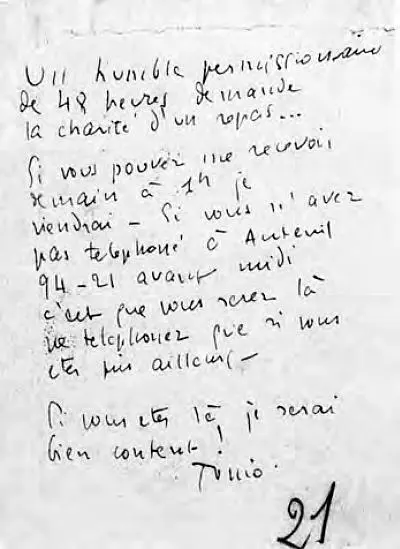 Un humble permissionnaire
de 48 heures demande
la charité d'un repas...
Si vous pouvez me recevoir
demain à 1h je
viendrai - Si vous n'avez
pas telephoné à Auteuil
94-21 avant midi
c'est que vous serez là
ne telephonez que si vous
etes pris ailleurs -
Si vous etes là, je serai
bien content !
Tonio.
21